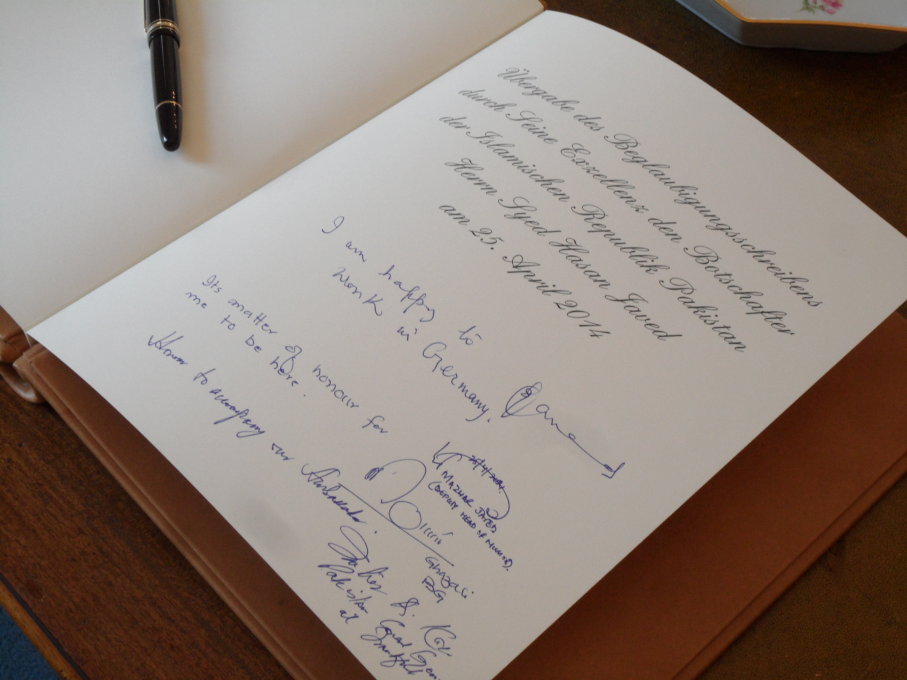 Übergabe des Beglaubigungsschreibens
durch Seine Exzellenz den Botschafter
der Islamischen Republik Pakistan
Herrn Syed Hasan Javed
am 25. April 2014
I am happy to
work in Germany.
Its matter of honour for
me to be here.
Honor to accompany our Ambassador.
25/4/2014
MAZHAR JAVED
(DEPUTY HEAD OF MISSION).
Pakistan
at